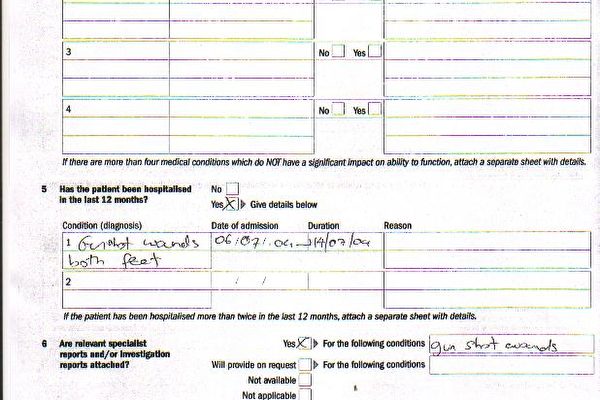 3
No Yes
4
No Yes
If there are more than four medical conditions which do NOT have a significant impact on ability to function, attach a separate sheet with details.
5 Has the patient been hospitalised in the last 12 months?
No
Yes X Give details below
Condition (diagnosis) Date of admission Duration Reason
1 Gunshot wounds 06/07/04 14/07/04
both feet
2 / /
If the patient has been hospitalised more than twice in the last 12 months, attach a separate sheet with details.
6 Are relevant specialist reports and/or investigation reports attached?
Yes X For the following conditions gun shot wounds
Will provide on request For the following conditions
Not available
Not applicable